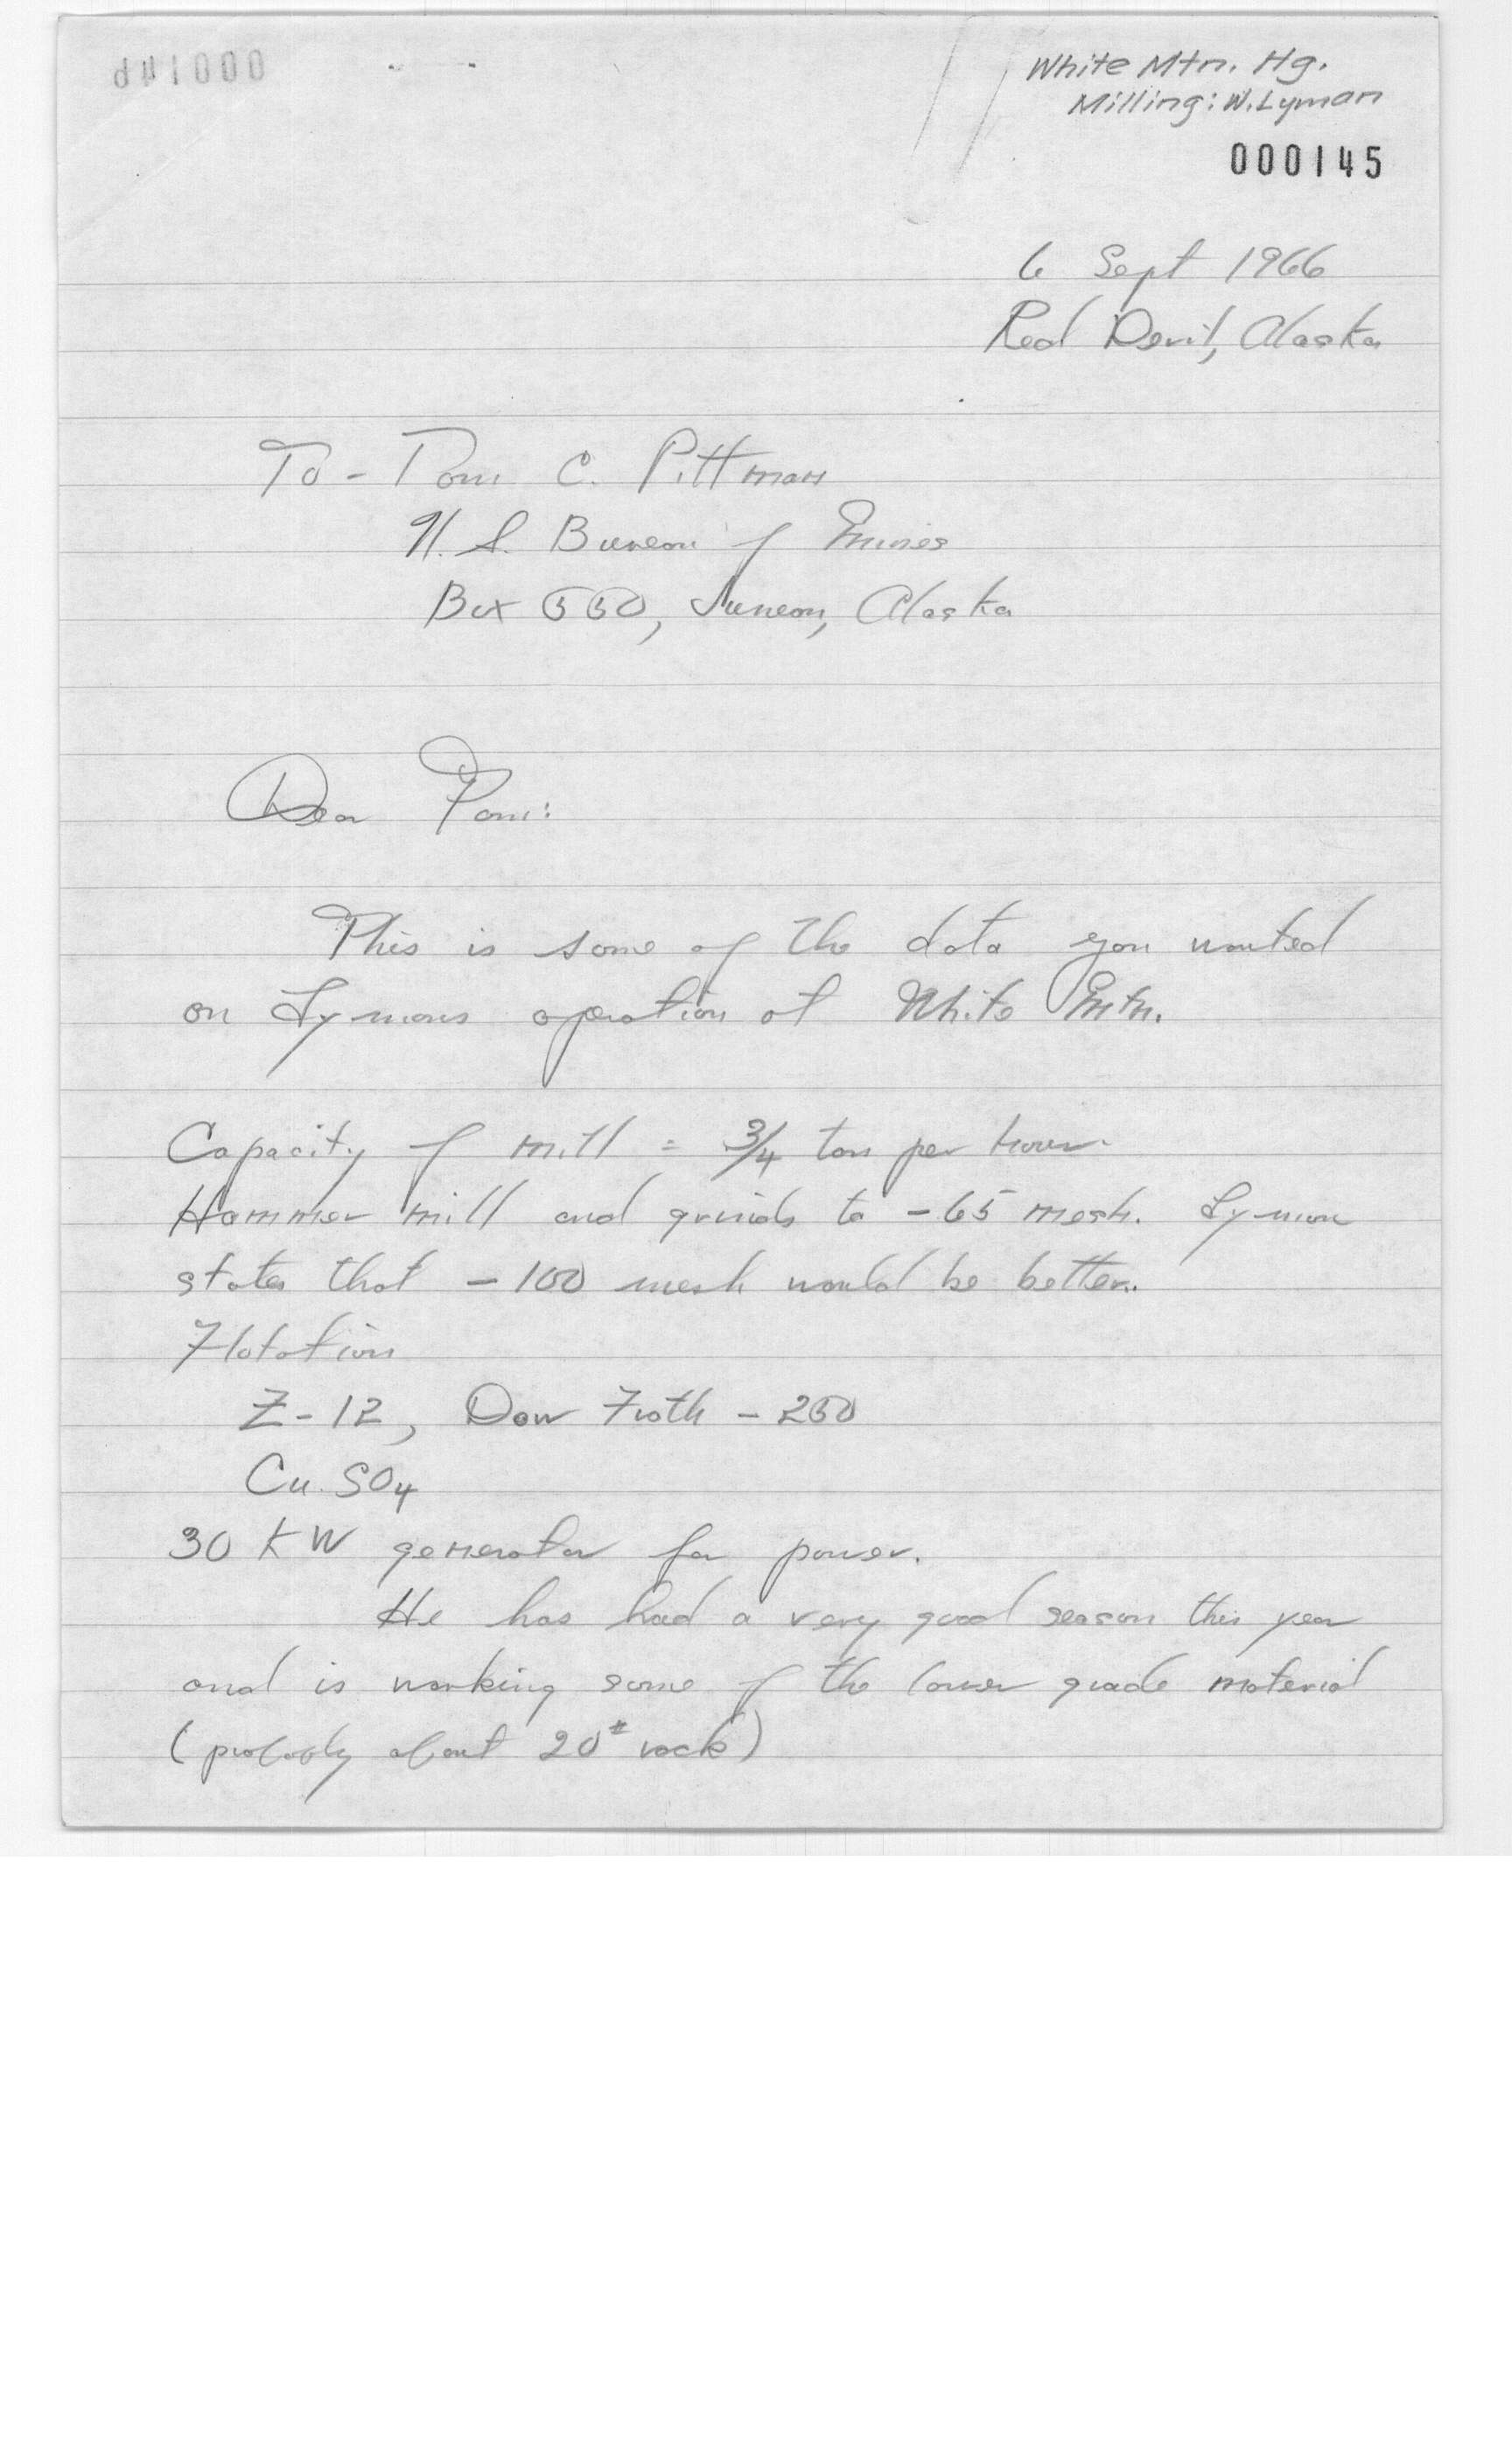 White Mtn. Hg.
Milling: W. Lyman
000145
6 Sept 1966
Red Devil, Alaska
To - Tom C. Pittman
U. S. Bureau of Mines
Box 550, Juneau, Alaska
Dear Tom:
This is some of the data you wanted
on Lymans operation at White Mtn.
Capacity of mill = 3/4 ton per hour.
Hammer mill and grinds to -65 mesh. Lyman
states that -100 mesh would be better.
Flotation
Z-12, Dow Froth - 250
Cu SO4
30 KW generator for power.
He has had a very good season this year
and is working some of the lower grade material
(probably about 20# rock)